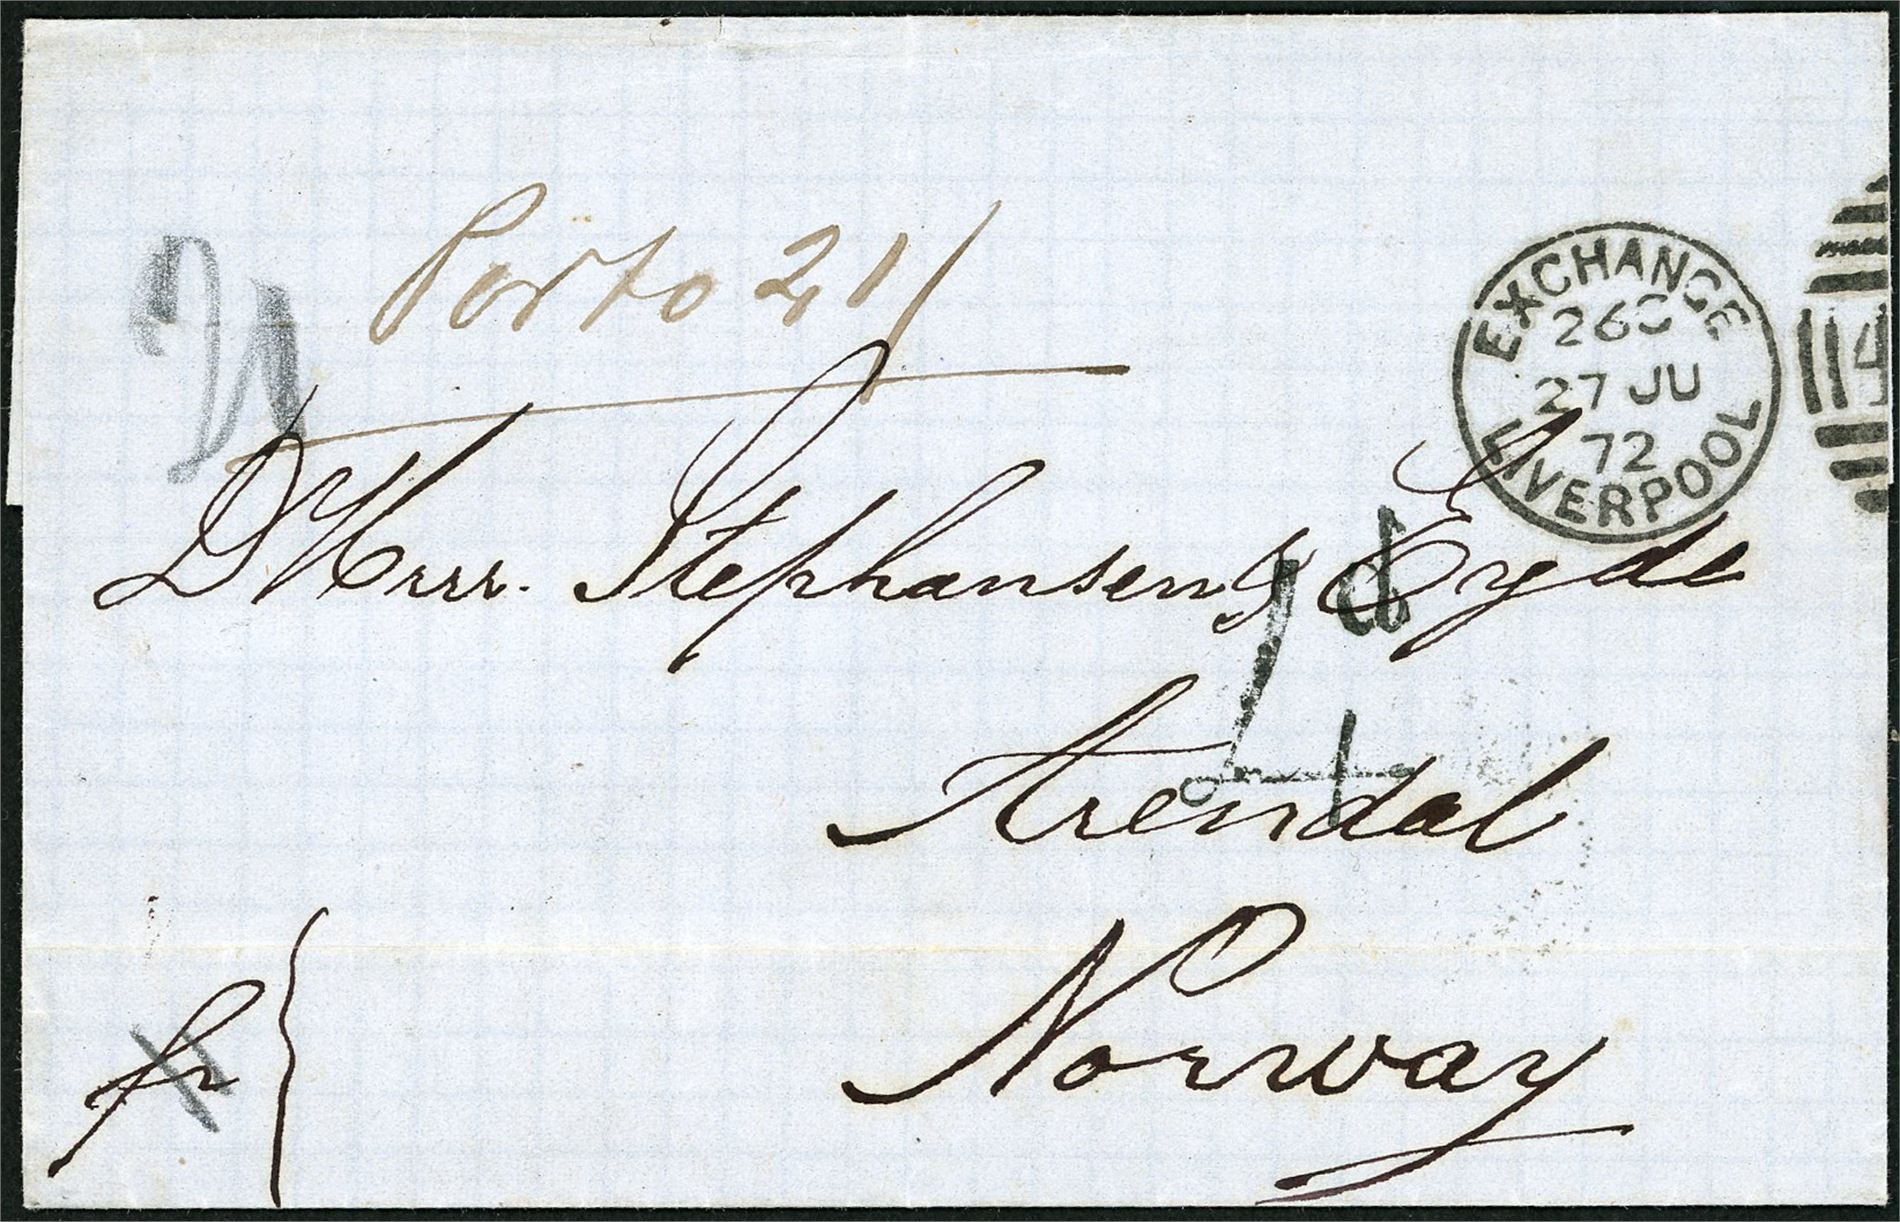 Porto 21
21
EXCHANGE
26C
27 JU
72
LIVERPOOL
4
D Herrr. Stephansen & Eyde
4d
Arendal
Norway
fr